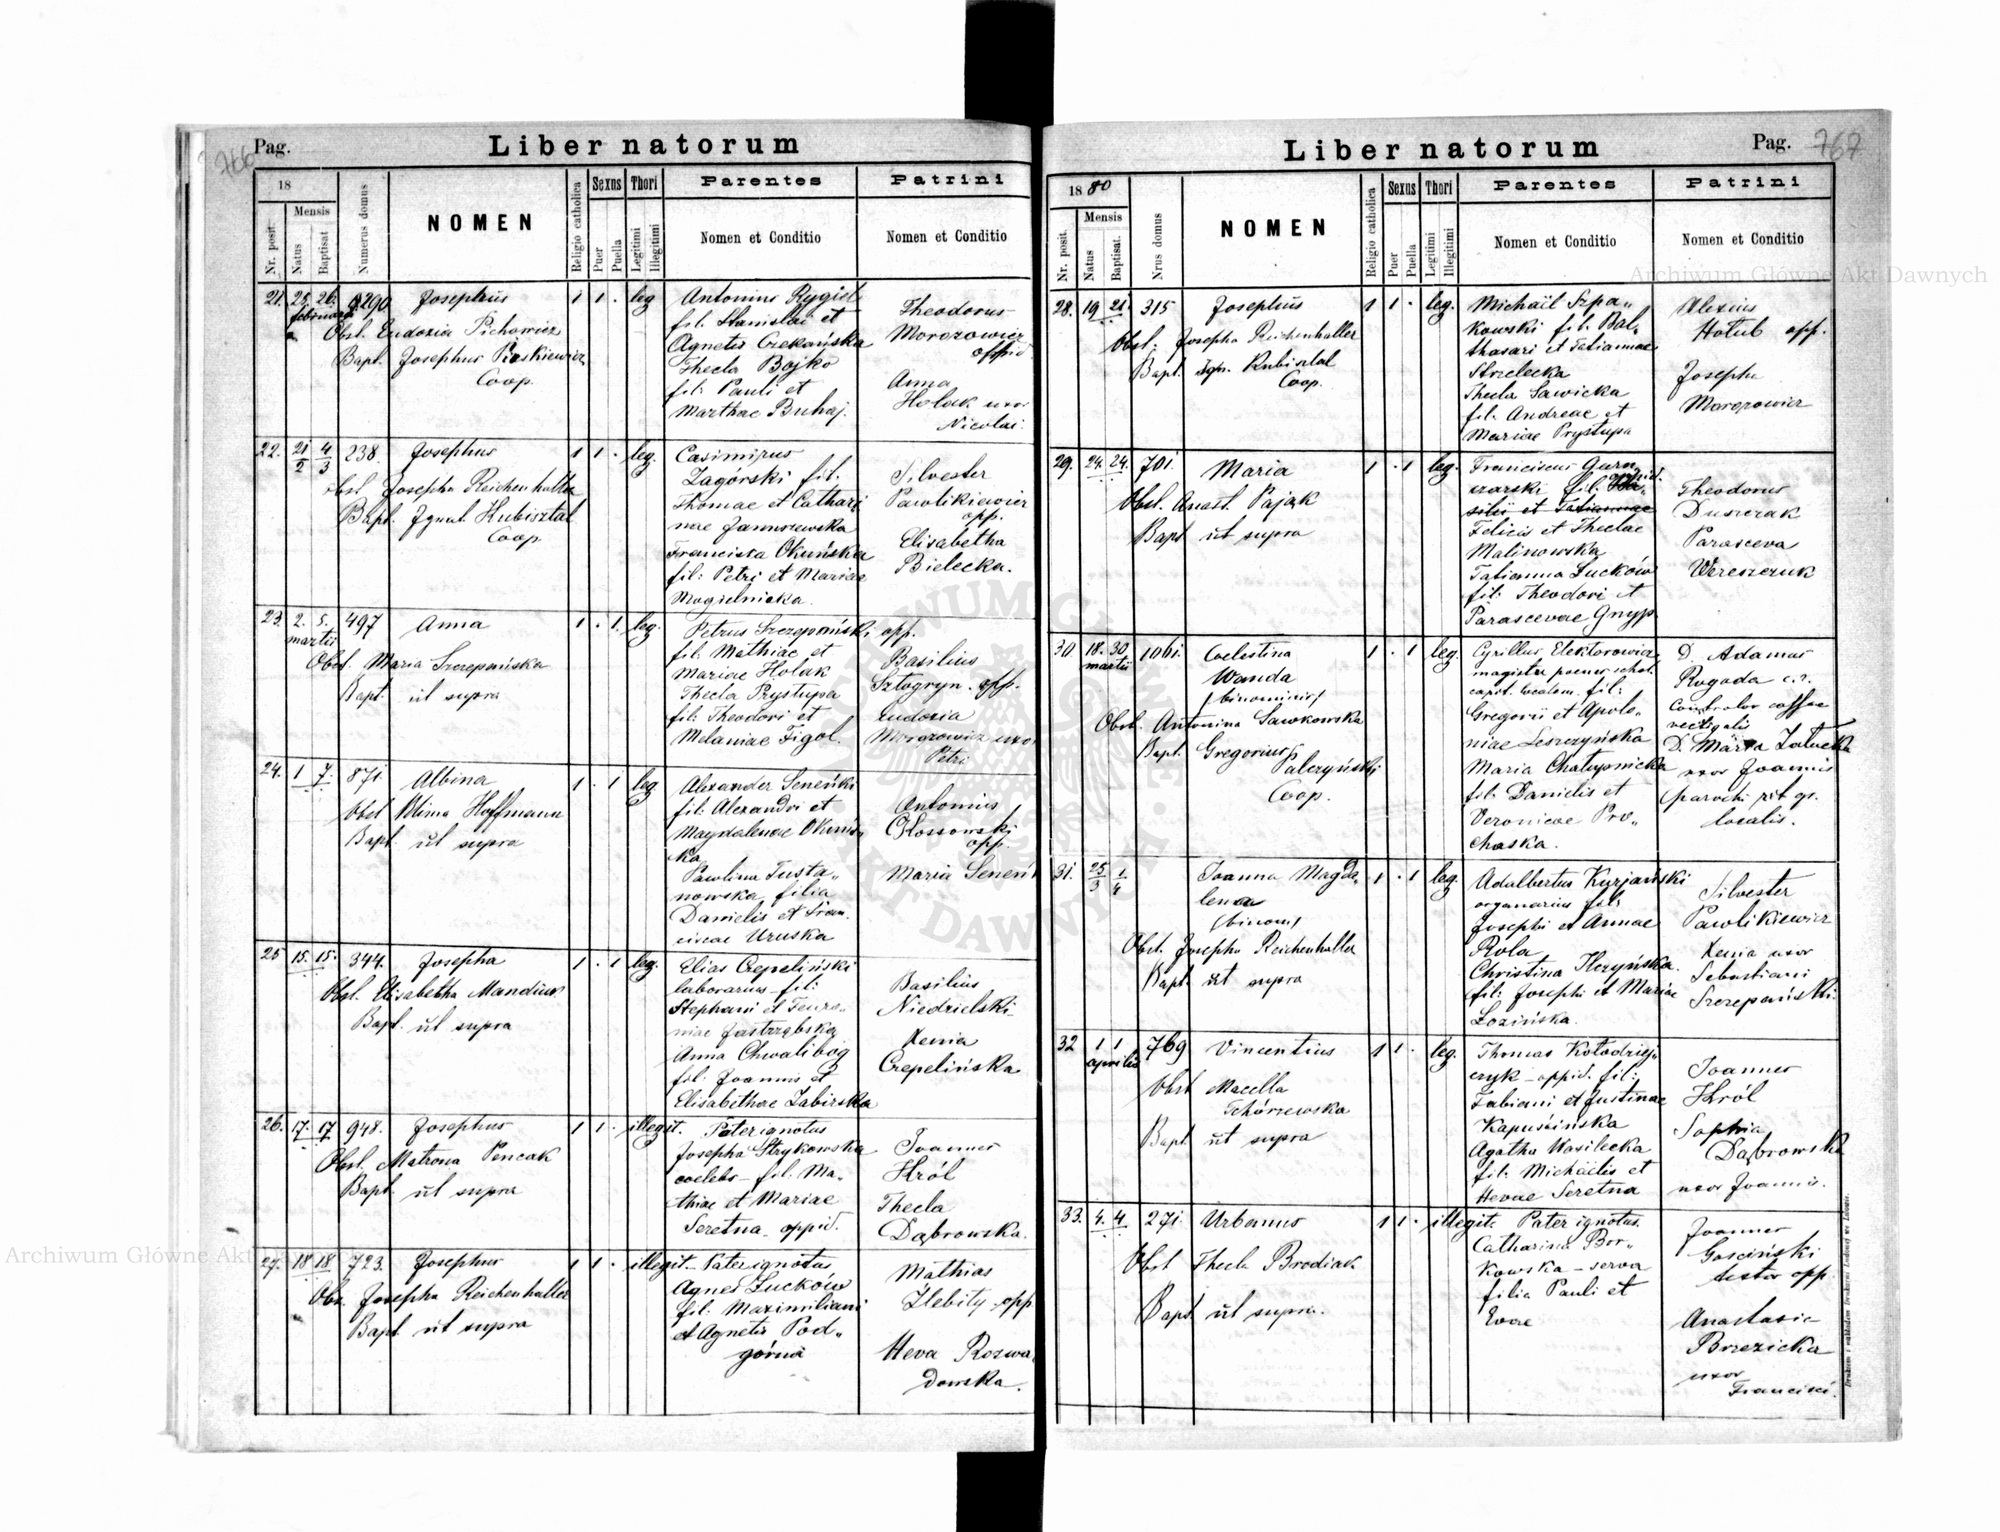 Pag. 766
Liber natorum
18
Nr. posit.
Mensis
Natus
Baptisat
Numerus domus
NOMEN
Religio catholica
Sexus
Puer
Puella
Thori
Legitimi
Illegitimi
Parentes
Nomen et Conditio
Patrini
Nomen et Conditio
21. 25. 26. 290 Josephus 1 1 . leg
februarii
Obst. Eudoxia Pichowicz
Bapt. Josephus
Coop.
Antonius Rygiel
fil. Stanislai et
Agnetis Czekańska
Thecla Bojko
fil: Pauli et
Marthae Buhaj.
Theodorus
Morozowicz
oppid
Anna
Holak uxor
Nicolai.
22. 21/2 4/3 238. Josephus 1 1 . leg.
obst Josepha Reichenhaller
Bapt. Ignat. Kubisztal
Coop.
Casimirus
Zagórski fil.
Thomae et Cathari
nae Januszewska
Franciska Okuńska
fil: Petri et Mariae
Mogielnicka.
Silvester
Pawlikiewicz
opp.
Elisabetha
Bielecka.
23. 2. 5. 497 Anna 1 . 1. leg.
martii
Obst. Maria Szczepańska
Bapt. ut supra
Petrus Szczepański opp.
fil. Mathiae et
Mariae Holak
Thecla Prystupa
fil: Theodori et
Melaniae Figol.
Basilius
Sztogryn. opp.
Eudoxia
Morozowicz uxor
Petri
24. 1 7. 871. Albina 1 . 1 leg
Obst Hoffmann
Bapt. ut supra
Alexander Seneński
fil. Alexandri et
Magdalenae Okuńs„
ka
Pawlina Tusta„
nowska filia
Danielis et Fran„
ciscae Uruska
Antonius
Ossowski
opp.
Maria Seneń
25 15. 15. 344. Josepha 1 . 1 leg.
Obst. Elisabetha Mandiuk
Bapt. ut supra
Elias Czepeliński
laborarius fil:
Stephani et
niae Jastrzębska
Anna Chwalibóg
fil: Joannis et
Elisabethae Zabirska
Basilius
Niedzielski
Xenia
Czepelińska
26. 17. 17 948. Josephus 1 1 . illegit.
Obst. Matrona Pencak
Bapt. ut supra
Pater ignotus
Josepha Strykowska
coelebs - fil. Ma„
thiae et Mariae
Seretna oppid.
Joannes
Król
Thecla
Dąbrowska.
27. 18 18 723. Josephus 1 1 . illegit.
Obs. Josepha Reichenhaller
Bapt. ut supra
Pater ignotus
Agnes Łucków
fil. Maximiliani
et Agnetis Pod„
górna
Mathias
Zlebity opp
Heva Rozwa„
dowska.
Liber natorum
Pag. 767
1880
Nr. posit.
Mensis
Natus
Baptisat.
Nrus domus
NOMEN
Religio catholica
Sexus
Puer
Puella
Thori
Legitimi
Illegitimi
Parentes
Nomen et Conditio
Patrini
Nomen et Conditio
28. 19 21. 315 Josephus 1 1 . leg.
Obst. Josepha Reichenhaller
Bapt. Ign. Kubisztal
Coop.
Michaïl Szpa„
kowski fil. Bal„
thasari et Tatiannae
Strzelecka
Thecla Sawicka
fil. Andreae et
Mariae Prystupa
Alexius
Hołub opp.
Josepha
Morozowicz
29. 24. 24. 701. Maria 1 . 1 leg.
Obst. Anast. Pająk
Bapt ut supra
Franciscus Garn„
czarski oppid. fil. Ba„
silii et Tatiannae
Felicis et Theclae
Malinowska
Tatianna Łucków
fil: Theodori et
Parascevae Gnyp.
Theodorus
Duszczak
Parasceva
Wereszczuk
30. 18. 30 1061. Coelestina 1 . 1 leg.
martii
Wanda
(binominis)
Obst. Antonina Sawkowska
Bapt. Gregorius
Palczyński
Coop.
Cyrillus Elektorowicz
magister
fil:
Gregorii et Apolo„
niae Leszczyńska
Maria Chałupnicka
fil. Danielis et
Veronicae Pro„
chaska.
D. Adamus
Rogoda c. r.
vectigalis
D. Maria
uxor Joannis
parochi rit gr.
localis.
31. 25/3 1/4 Joanna Magda„ 1 . 1 leg.
lena
(binom)
Obst. Josepha Reichenhaller
Bapt. ut supra
Adalbertus Kurjański
organarius fil:
Josephi et Annae
Rola
Christina Ilczyńska
fil: Josephi et Mariae
Łozińska.
Silvester
Pawlikiewicz
Xenia uxor
Sebastiani
Szczepański.
32 1 1 769 Vincentius 1 1 . leg.
aprilis
Obst Macella
Tchórzewska
Bapt ut supra
Thomas Kołodziej„
czyk - oppid. fil:
Fabiani et Justinae
Kapuścińska
Agatha Wasilecka
fil. Michaëlis et
Hevae Seretna
Joannes
Król
Sophia
Dąbrowska
uxor Joannis.
33. 4. 4. 271. Urbanus 1 1 . illegit.
Obst Thecla Brodiak
Bapt. ut supra.
Pater ignotus
Catharina Bor„
kowska - serva
filia Pauli et
Evae
Joannes
Gościński
sutor opp.
Anastasia
Brzezicka
uxor
Francisci.
Archiwum Główne Akt Dawnych
Archiwum Główne Akt Dawnych
ARCHIWUM GŁÓWNE AKT DAWNYCH